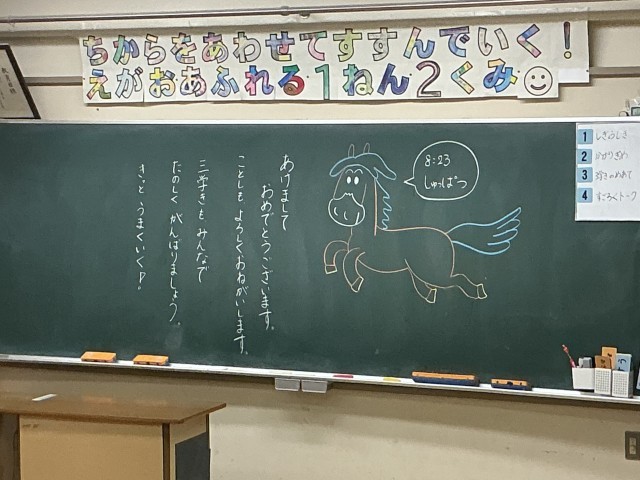 ちからをあわせてすすんでいく!
えがおあふれる1ねん2くみ
8:23
しゅっぱつ
あけまして
おめでとうございます。
ことしも よろしくおねがいします。
三学きも みんなで
たのしく がんばりましょう。
きっと うまくいく
1 しぎょうしき
2
3
4 すごろくトーク